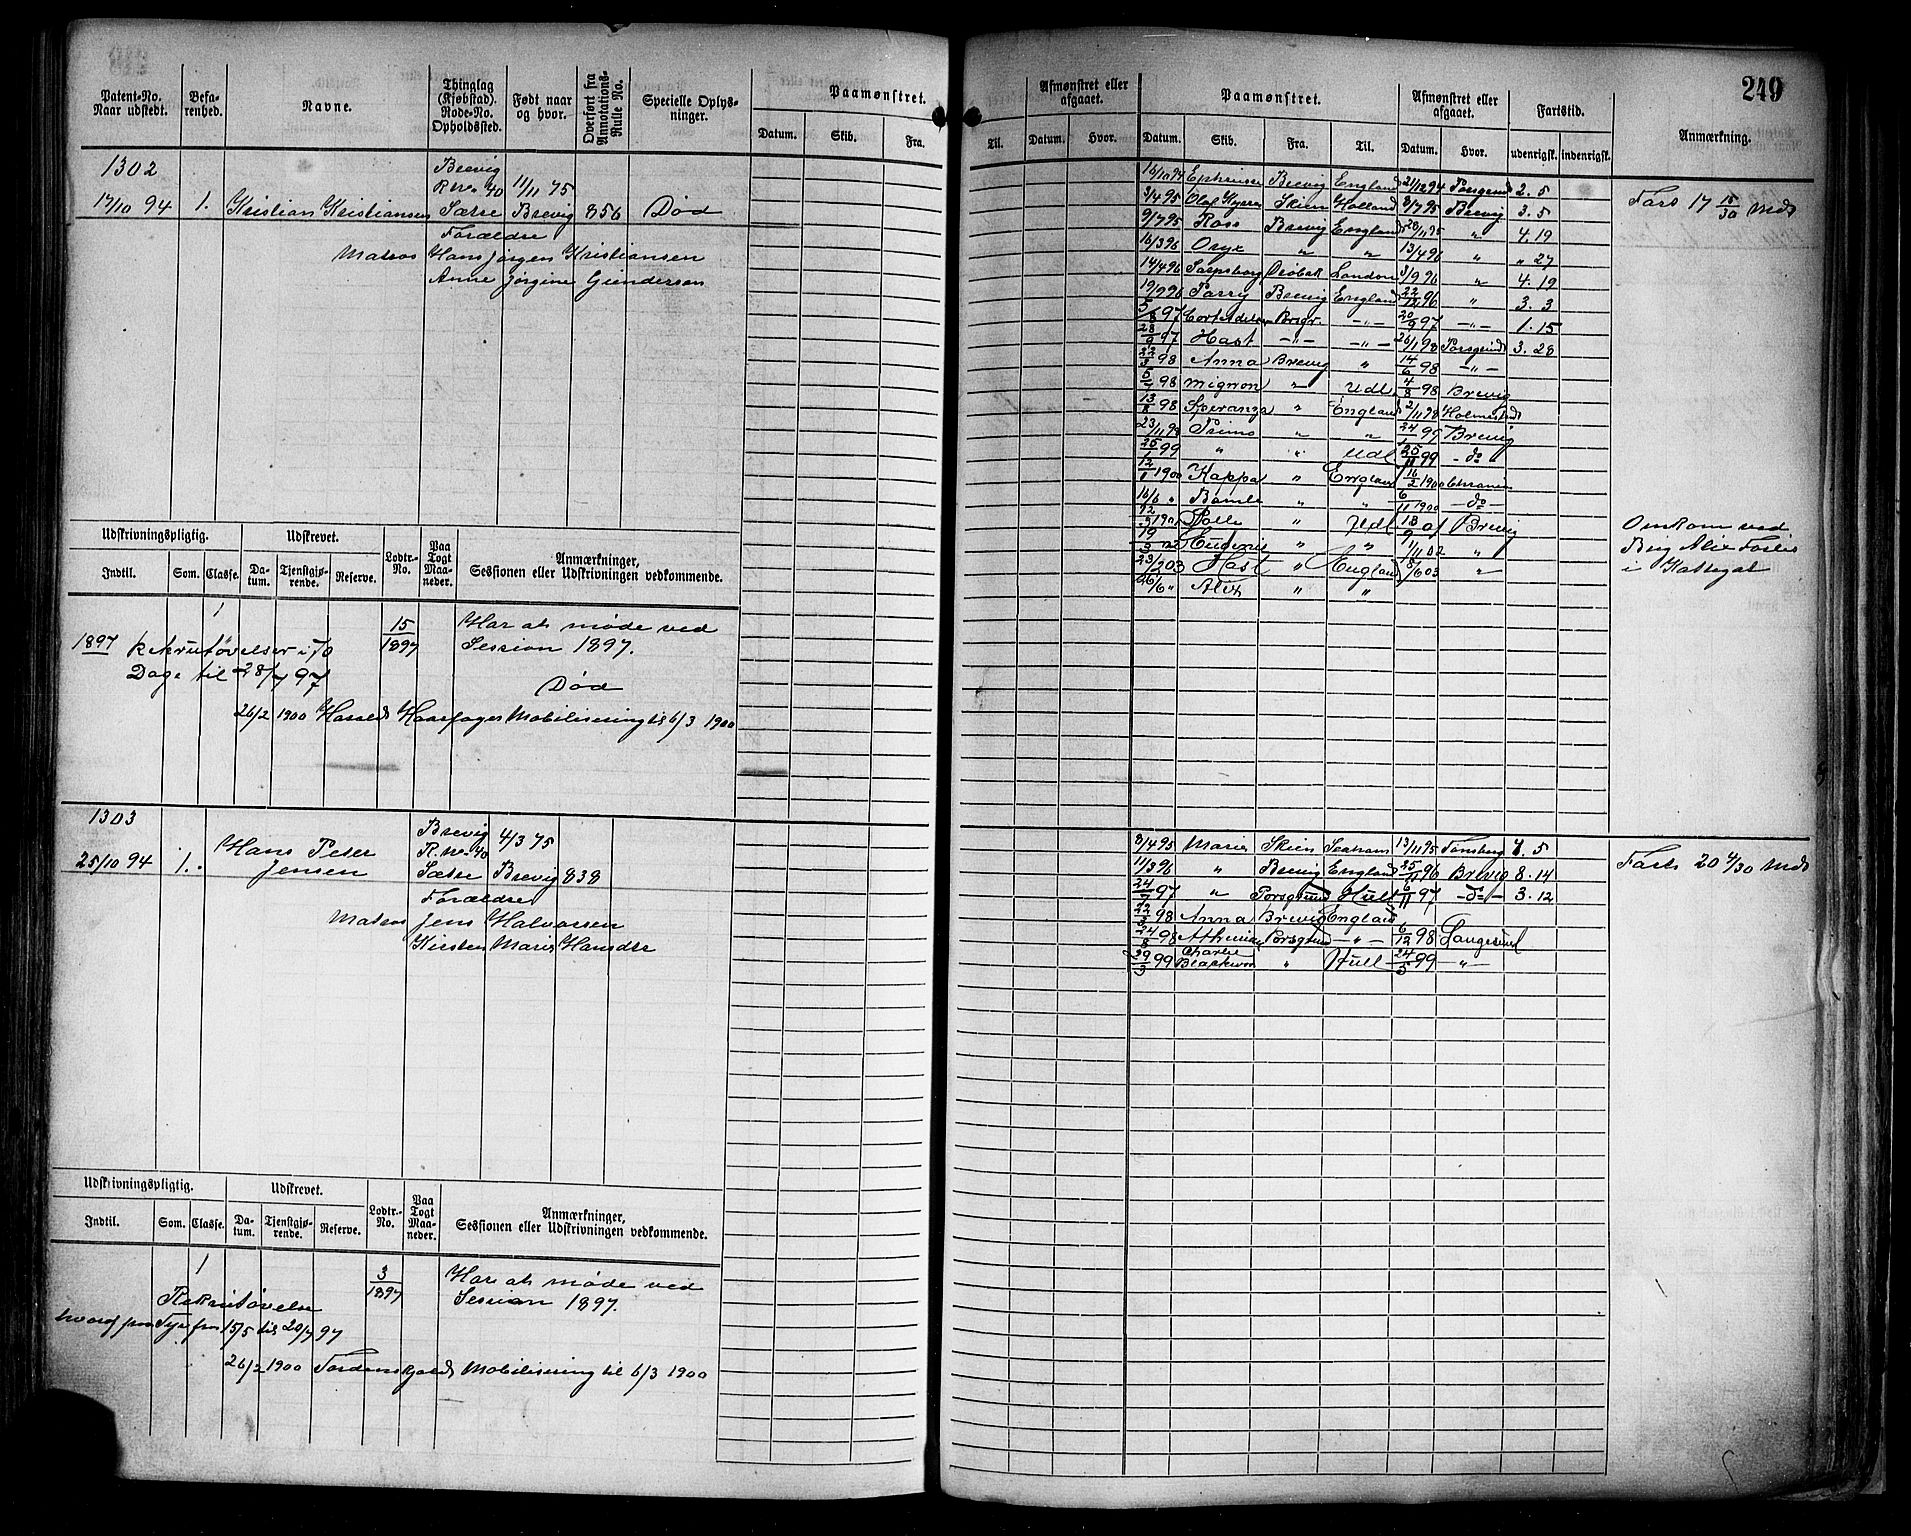 249
Patent-No. Naar udstedt. Befarenhed. Navne. Thinglag (Kjøbstad). Rode-No. Opholdssted. Født naar og hvor. Overført fra Annotations-Rulle No. Specielle Oplysninger. Paamønstret.
Datum. Skib. Fra.
1302 Brevig
R No 40 11/11 75
17/10 94 1. Kristian Kristiansen Sætre Brevig 856 Død
Forældre
Matros Hans Jørgen Kristiansen
Anne Jørgine Gundersen
Udskrivningspligtig. Udskrevet. Lodtr.-No. Paa Togt Maaneder. Anmærkninger, Sessionen eller Udskrivningen vedkommende.
Indtil. Som. Classe. Datum. Tjenstgjørende. Reserve.
1 15/1897 Har at møde ved
1897 Rekrutøvelser i 70 Session 1897.
Dage til 28/7 97
Død
26/2 1900 Harald Haarfager Mobilisering til 6/3 1900
1303 Brevig 4/3 75
R. No 40
25/10 94 1. Hans Peter Jensen Sætre Brevig 838
Forældre
Matros Jens Halvorsen
Kirsten Marie Hansdr
Udskrivningspligtig. Udskrevet. Lodtr.-No. Paa Togt Maaneder. Anmærkninger, Sessionen eller Udskrivningen vedkommende.
Indtil. Som. Classe. Datum. Tjenstgjørende. Reserve.
1 3/1897 Har at møde ved
Rekrutøvelse Session 1897.
fra 15/5 til 20/7 97
26/2 1900 Tordenskjold Mobilisering til 6/3 1900
Afmønstret eller afgaaet. Paamønstret. Afmønstret eller afgaaet. Fartstid. Anmærkning.
Til. Datum. Hvor. Datum. Skib. Fra. Til. Datum. Hvor. udenrigsk. indenrigsk.
16/10 94 Brevig England 21/12 94 Porsgrund 2. 5 Fars 17 15/30 Mdr
3/4 95 Olaf Kyrre Skien Holland 8/7 95 Brevig 3. 5
9/7 95 Ross Brevig England 28/11 95 " 4. 19
16/3 96 Oryx " " 13/4 96 " " 27
14/4 96 Sarpsborg Drøbak London 3/9 96 " 4. 19
19/9 96 Parry Brevig England 22/12 96 " 3. 3
5/8 97 Cort Adeler Brvgr. -"- 20/9 97 -"- 1. 15
28/9 97 Hast -"- -"- 26/1 98 Porsgrund 3. 28
22/3 98 Anna Brevig " 14/6 98 -"-
5/7 98 Mignon " Udl. 4/8 98 Brevig
13/8 98 Speranza " England 2/11 98 Holmestrand
23/11 98 Primo " " 24/1 99 Brevig
25/1 99 " " Udl 25/11 99 - do -
12/1 1900 Kappa " England 16/2 1900
16/6 " Bamle " " 6/11 1900 - do -
12/2 1901 " Udl 18/9 01 Brevig Omkom ved
19/3 02 " " 11/11 02 " Brig Alix Forlis
23/2 03 Hast " England 8/6 03 " i Kattegat
26/6 " Alix " "
3/4 95 Marie Skien Seaham 13/11 95 Tønsberg 7. 5 Farts 20 4/30 Mdr
11/3 96 " Brevig England 25/11 96 Brevig 8. 14
24/7 97 " Porsgrund Hull 6/11 97 - do - 3. 12
22/3 98 Anna Brevig England
24/8 98 Porsgrund -"- 6/12 98 Langesund
29/3 99 Charlie " Hull 24/5 99 -"-